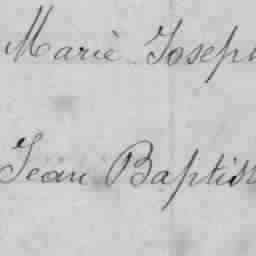 Marie Joseph
Jean Baptist